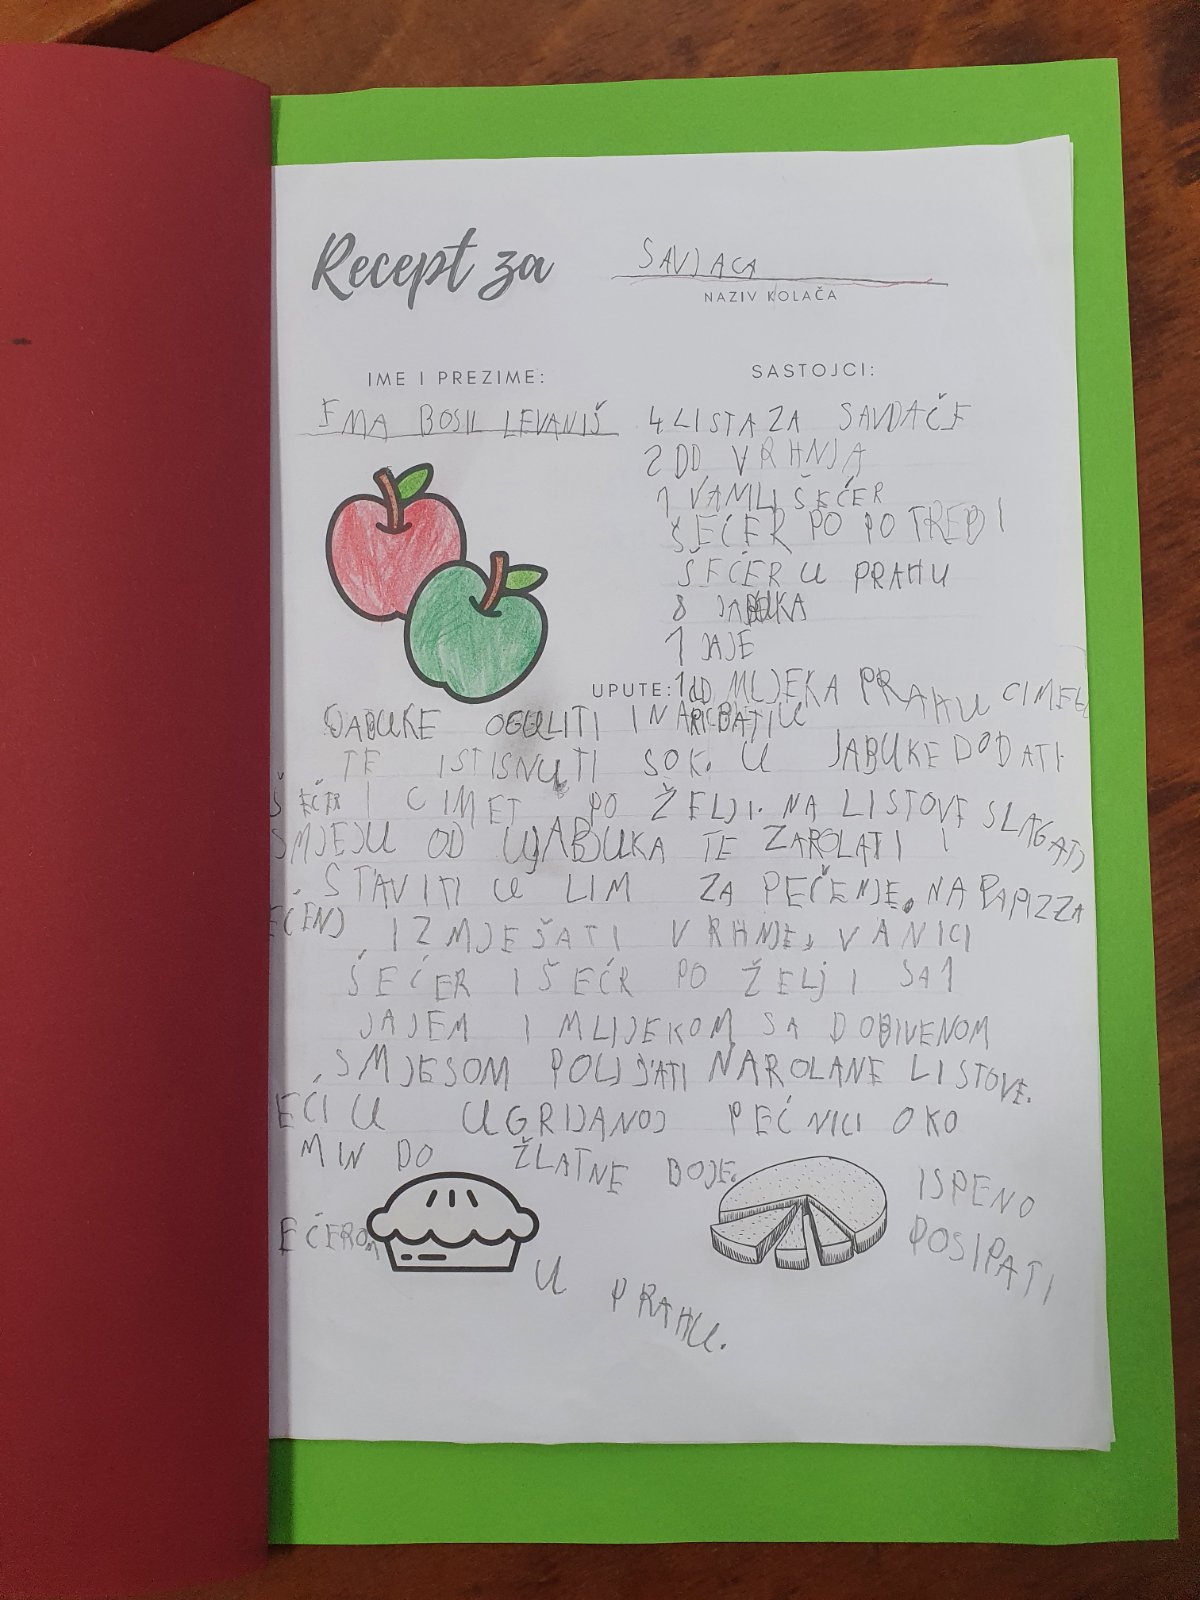 Recept za
SAVJACA
NAZIV KOLAČA
IME I PREZIME:
EMA BOSIL LEVANIŠ
SASTOJCI:
4 LISTA ZA SAVDAČE
2 DD VRHNJA
1 VAMLI ŠEĆER
ŠEĆER PO POTREBI
ŠEĆER U PRAHU
8
1 JAJE
1 dD MLJEKA PRAHU CIMET
UPUTE:
JABUKE OGULITI I
TE ISTISNUTI SOK. U JABUKE DODATI
ŠEĆER I CIMET PO ŽELJI. NA LISTOVE SLAGATI
SMJEJU OD JABUKA TE ZAROLATI I
STAVITI U LIM ZA PEČENJE. NA PAPIZZA
EĆENJ IZMJEŠATI VRHNJE, VANICI
ŠEĆER I ŠEĆR PO ŽELJI SA 1
JAJEM I MLIJEKOM SA DOBIVENOM
SMJESOM POLIJATI NAROLANE LISTOVE.
EĆI U UGRIJANOJ PEĆNICI OKO
MIN DO ŽLATNE BOJE.
ISPENO
POSIPATI
EĆEROM
U PRAHU.